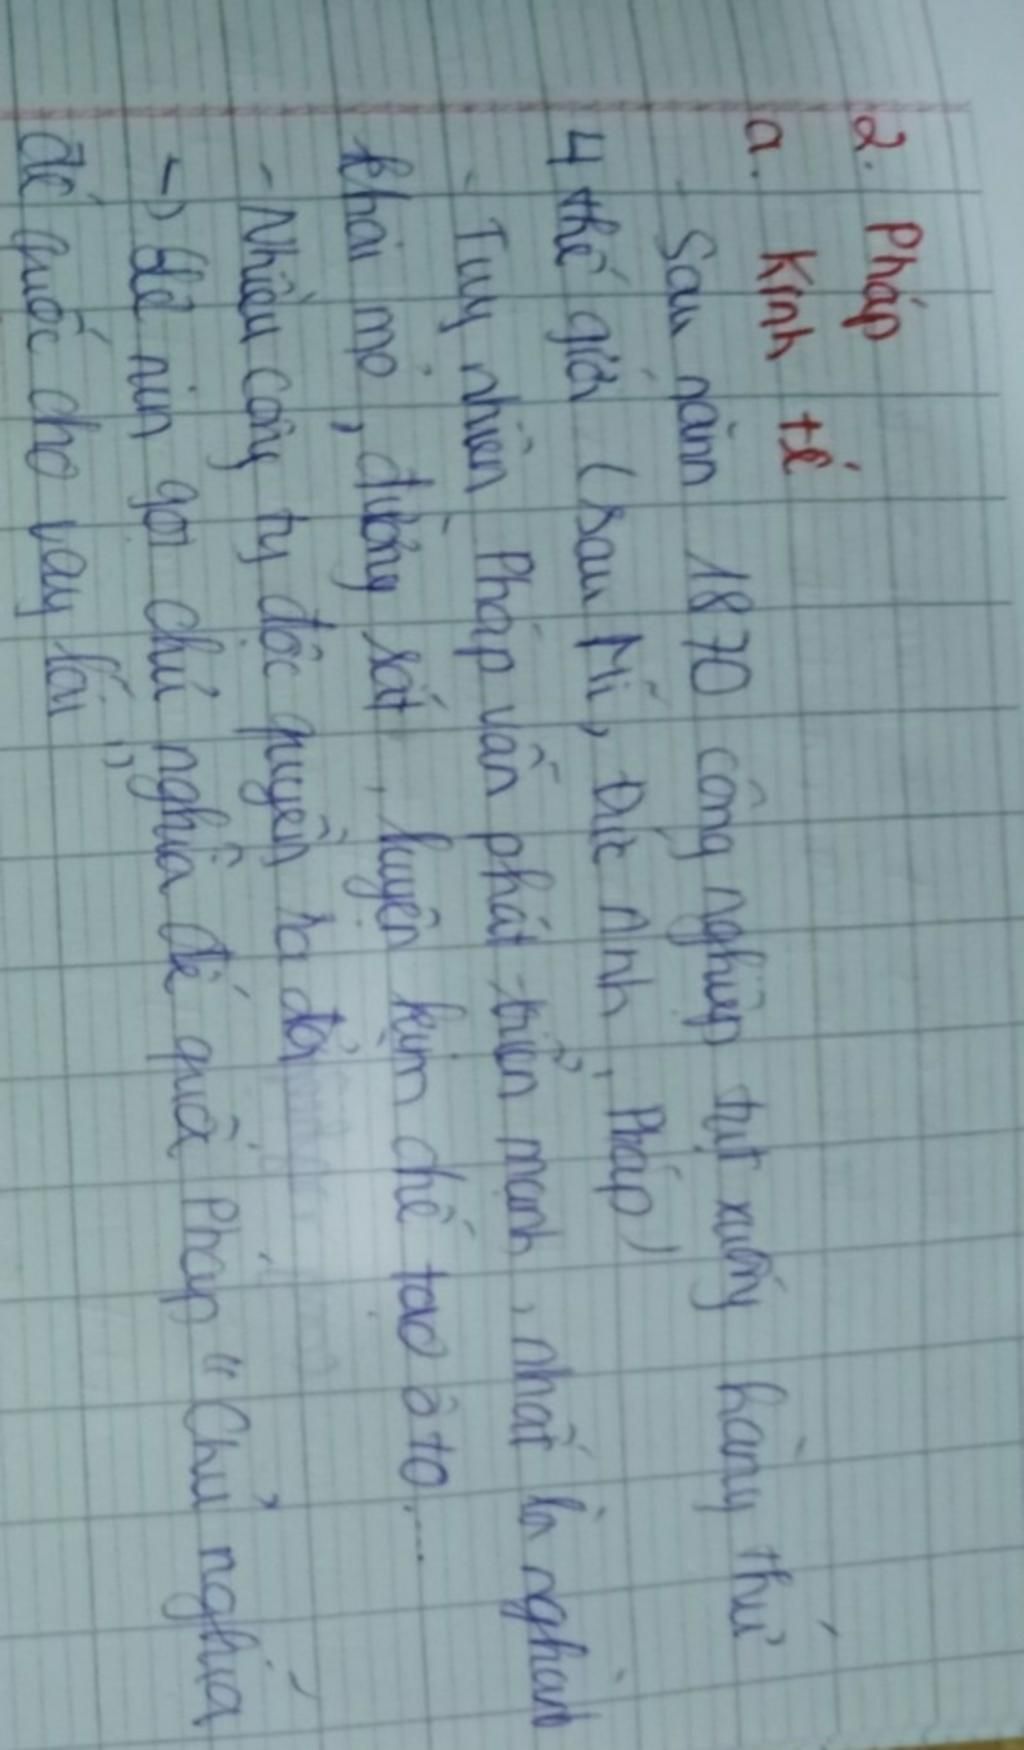 2. Pháp
a. Kinh tế
- Sau năm 1870 công nghiệp tụt xuống hàng thứ
4 thế giới (sau Mĩ, Đức Anh, Pháp)
- Tuy nhiên Pháp vẫn phát triển mạnh, nhất là nghành
khai mỏ, đường sắt, luyện kim chế tạo ô tô....
- Nhiều công ty độc quyền ra đời
-> Lê nin gọi chủ nghĩa đế quốc Pháp "Chủ nghĩa
đế quốc cho vay lãi"